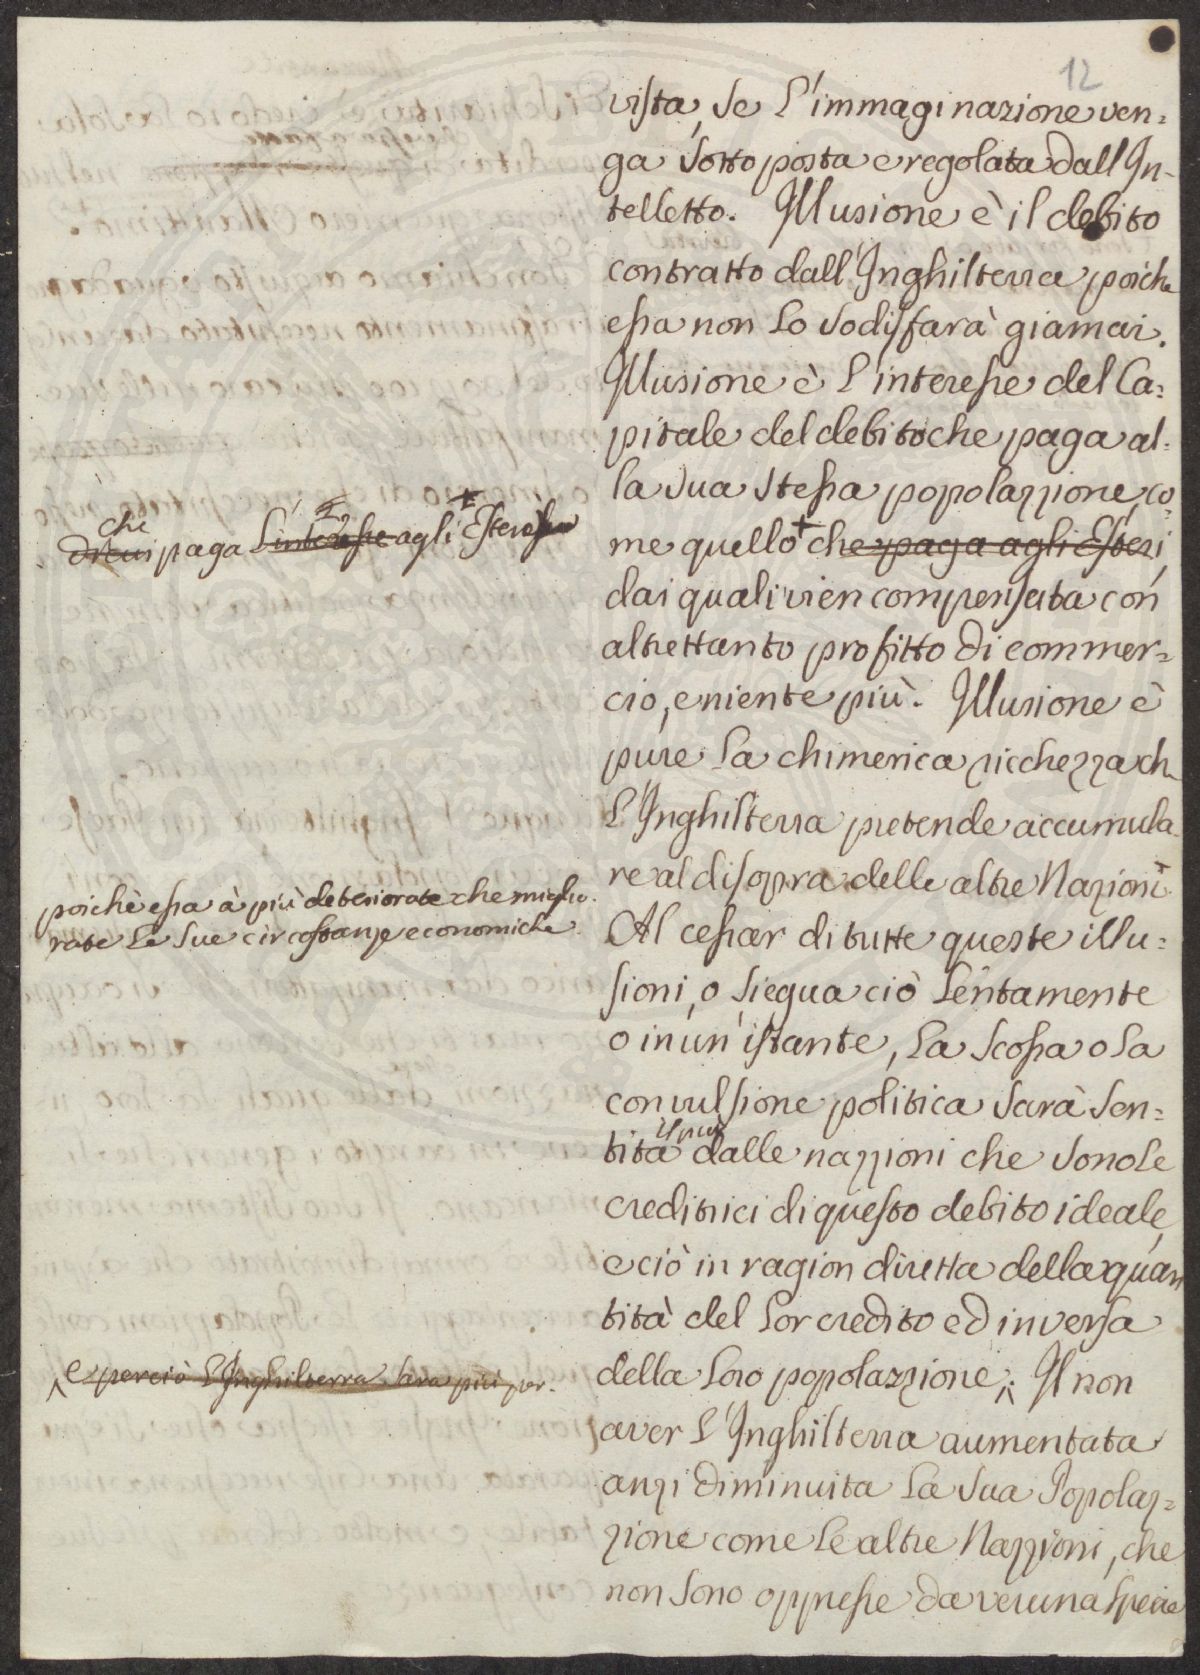 12
vista, se l'immaginazione ven=
ga sottoposta e regolata dall'In-
telletto. Illusione è il debito
contratto dall'Inghilterra poiche
essa non lo sodisfarà giamai.
Illusione è l'interesse del Ca=
pitale del debito che paga al=
la sua stessa popolazzione, co=
me quello + che paga agli Esteri,
dai quali vien compensata con
altrettanto profitto di commer=
cio, e niente più. Illusione è
pure la chimerica ricchezza che
l'Inghilterra pretende accumula
re al disopra delle altre Nazioni
Al cessar di tutte queste illu=
sioni, o siegua ciò lentamente
o in un'istante, la scossa o la
convulsione politica sarà sen=
il più
tita dalle nazzioni che sono le
creditrici di questo debito ideale,
e ciò in ragion diretta della quan
tità del lor credito ed inversa
della loro popolazzione; Il non
aver l'Inghilterra aumentata
anzi diminuita la sua Popolaz=
zione come le altre Nazzioni, che
non sono oppresse da veruna specie
che
paga l'interesse agli + Esteri
poichè essa à più deteriorate che miglio-
rate le sue circostanze economiche
e perciò l'Inghilterra sara più per-